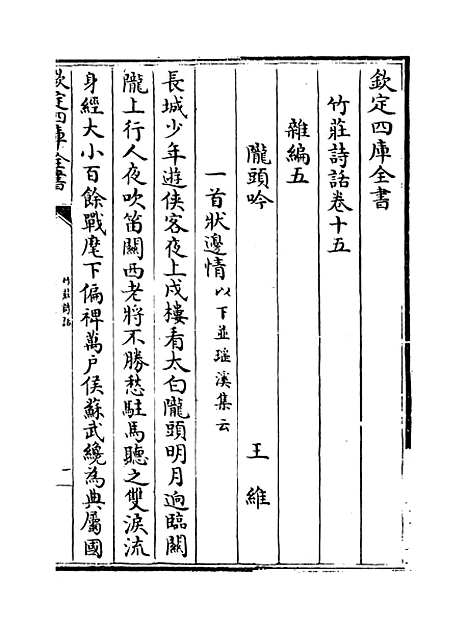 欽定四庫全書
竹莊詩話卷十五
雜編五
隴頭吟 王維
一首狀邊情以下並瑶溪集云
長城少年遊俠客夜上戍樓看太白隴頭明月迥臨關
隴上行人夜吹笛關西老將不勝愁駐馬聽之雙淚流
身經大小百餘戰麾下偏禆萬户侯蘇武纔為典屬國
欽定四庫全書
竹莊詩話
一